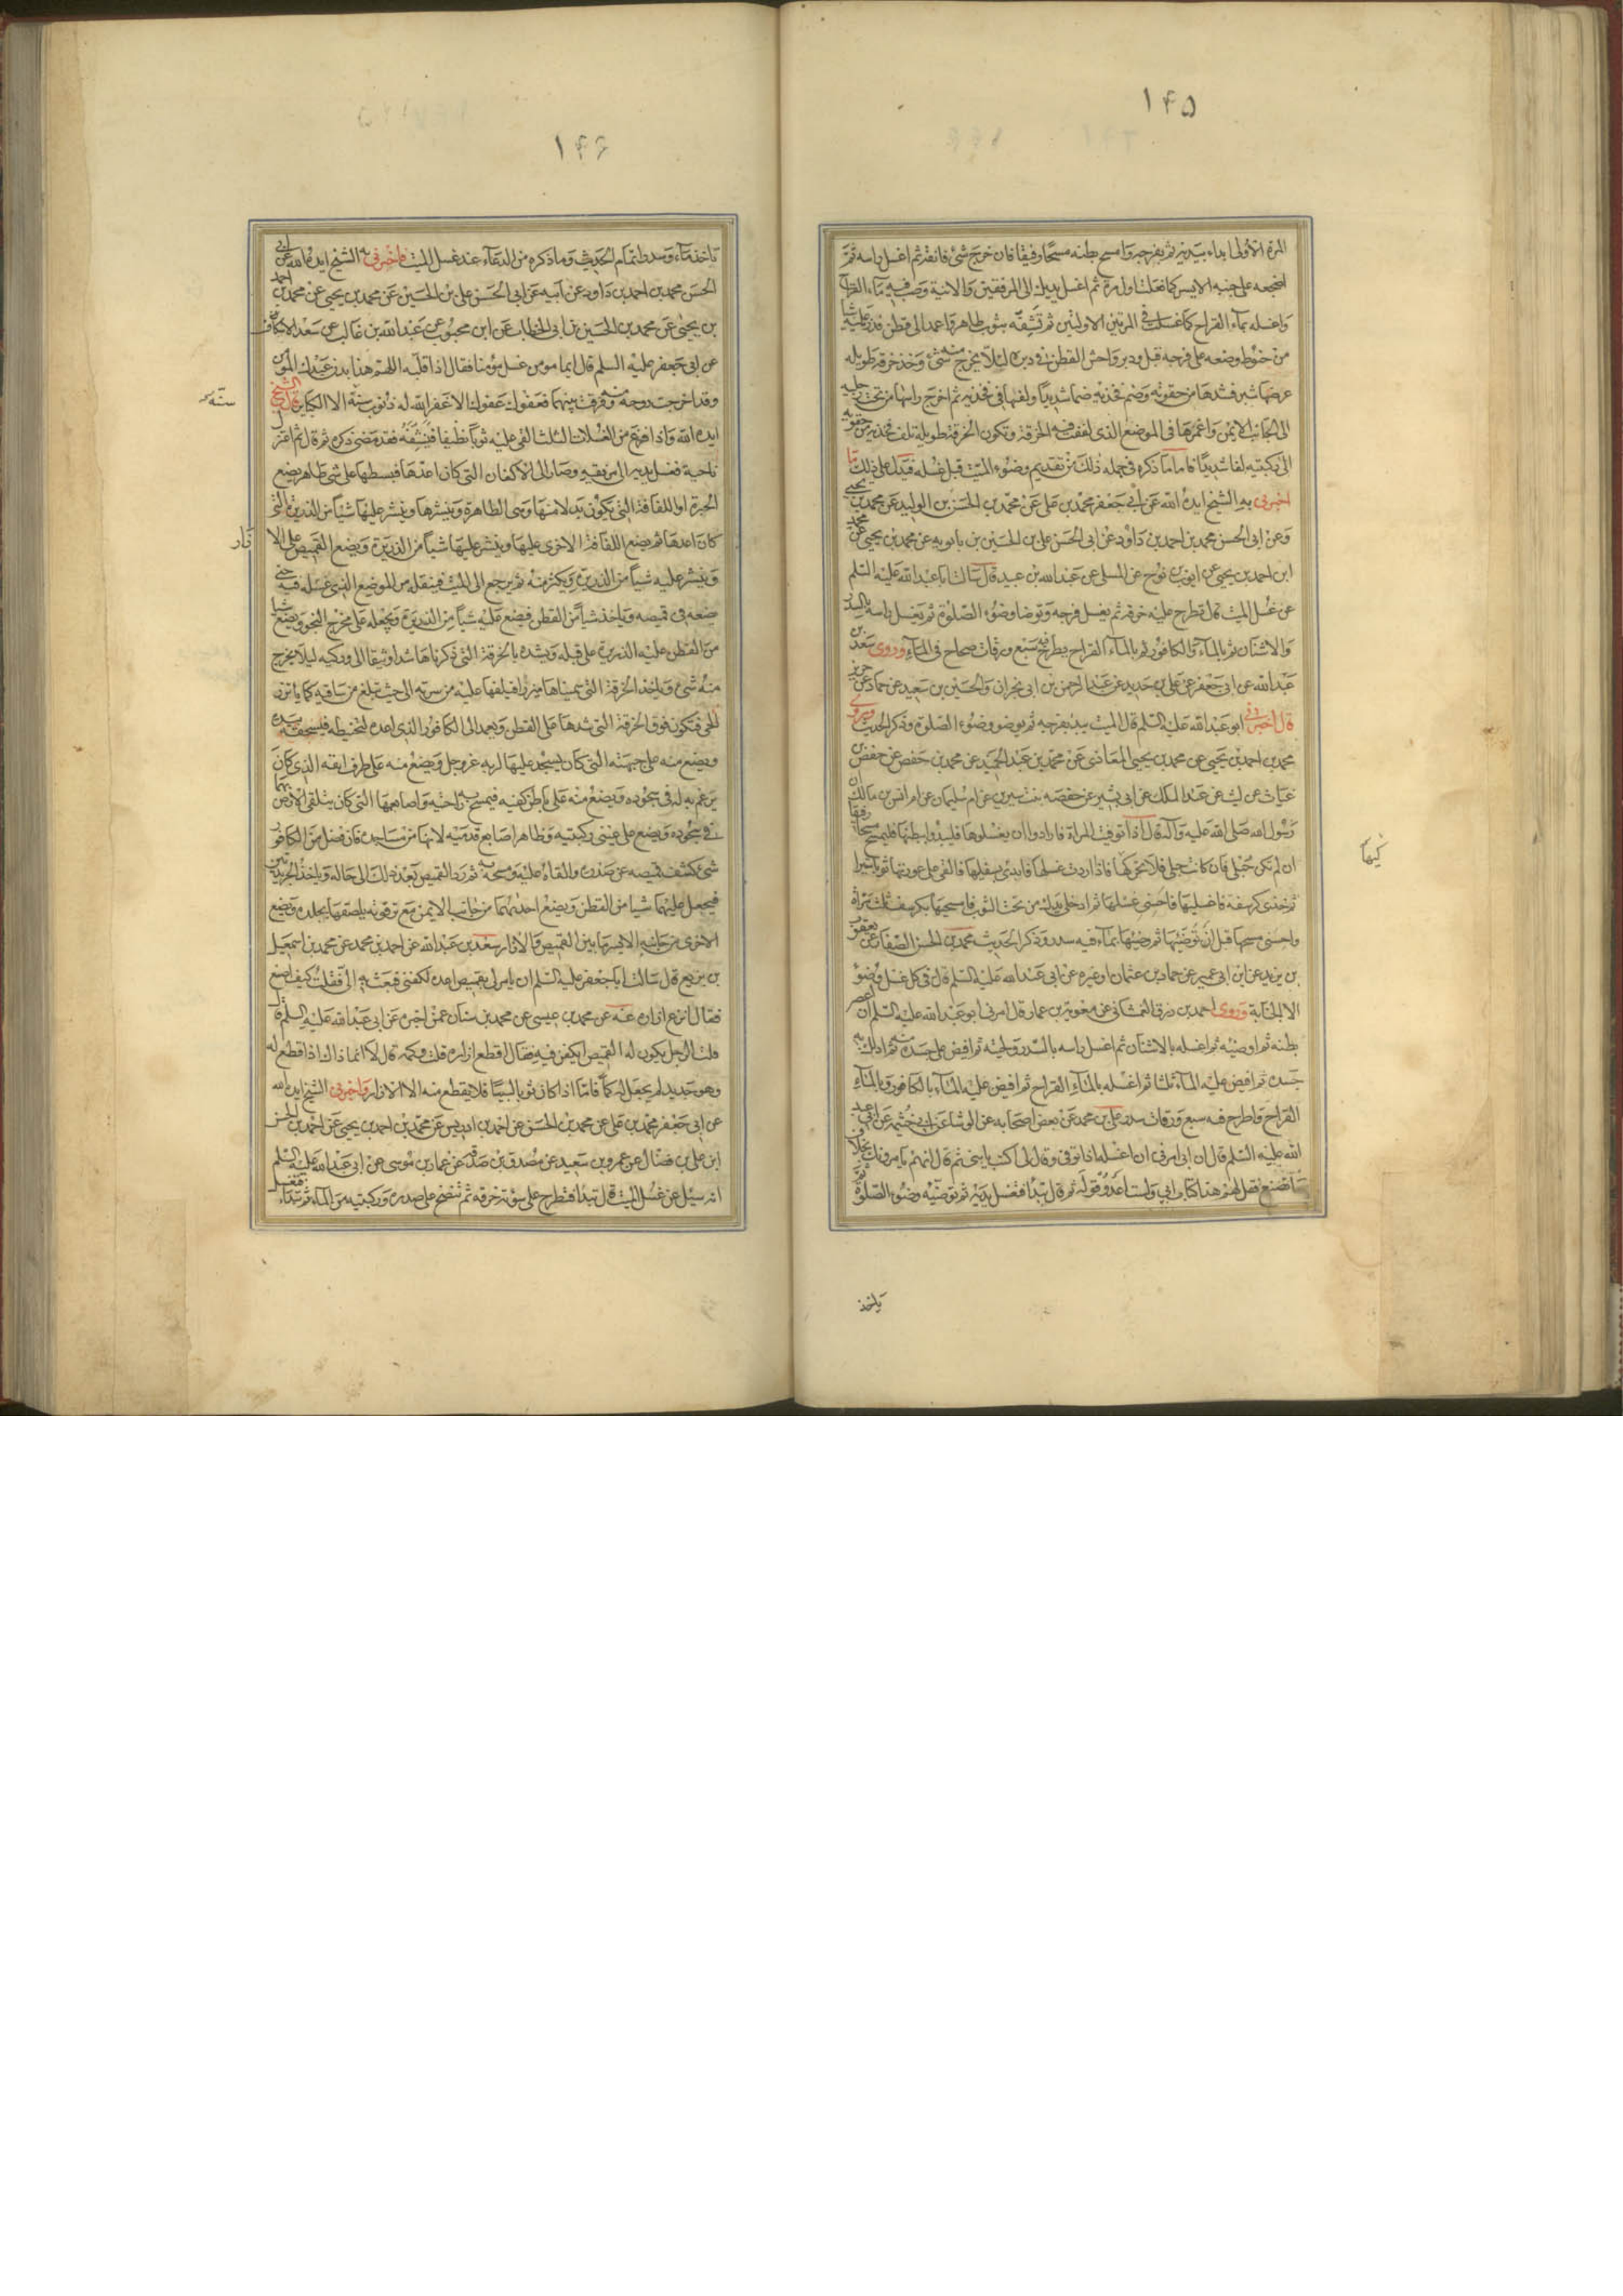 ١۴۵
المرة الاولى ابداء بيديه ثم بفرجه وامسح بطنه مسحا رفيقا فان خرج شئ فانقه ثم اغسل راسه ثم
اضجعه على جنبه الايسر كما فعلت اول مرة ثم اغسل يديك الى المرفقين والانية وصب فيه ماء القراح
واغسله بماء القراح كما غسلت في المرتين الاولتين ثم تنشفه بثوب طاهر واعمد الى قطن فذر عليه شيأ
من حنوط وضعه على فرجه قبل ودبر واحش القطن في دبره لئلا يخرج منه شئ وخذ خرقة طويله
عرضها شبر فشدها من حقويه وضم فخذيه ضما شديدا ولفها في فخذيه ثم اخرج راسها من تحت رجليه
الى الجانب الايمن واغمرها في الموضع الذى لففت فيه الخرقة وتكون الخرقة طويلة تلف فخذيه من حقويه
الى ركبتيه لفا شديدا فاما ما ذكره في جمله ذلك من تقديم وضوء الميت قبل غسله فيدل على ذلك ما
اخبرني به الشيخ ايده الله عن ابي جعفر محمد بن على عن محمد بن الحسن بن الوليد عن محمد بن يحيى
وعن ابى الحسن محمد بن احمد بن داود عن ابى الحسن على بن الحسين بن بابويه عن محمد بن يحيى عن محمد
ابن احمد بن يحيى عن ايوب بن نوح عن المسلى عن عبد الله بن عبيد قال سالت ابا عبد الله عليه السلم
عن غسل الميت قال تطرح عليه خرقة ثم يغسل فرجه وتوضا وضوء الصلوة ثم يغسل راسه بالسدر
والاشنان ثم بالماء والكافور ثم بالماء القراح يطرح فيه سبع ورقات صحاح في الماء وروى سعد بن
عبد الله عن ابى جعفر عن على بن حديد عن عبد الرحمن بن ابى نجران والحسين بن سعيد عن حماد عن حريز
قال اخبرني ابو عبد الله عليه السلم قال الميت يبدء بفرجه ثم يوضو وضوء الصلوة وذكر الحديث وروى
محمد بن احمد بن يحيى عن محمد بن يحيى المعاذى عن محمد بن عبد الحميد عن محمد بن حفص عن حفص بن
غياث عن ليث عن عبد الملك عن ابى بشير عن حفصه بنت سيرين عن ام سليمان عن ام انس بن مالك ان
رسول الله صلى الله عليه وآله قال اذا توفيت المراة فارادوا ان يغسلوها فليبدؤا ببطنها فليمسح مسحا رفيقا
ان لم تكن حبلى فان كانت حبلى فلا تحركها فاذا اردت غسلها فابدئى بسفليها فالقى على عورتها ثوبا ستيرا
ثم خذى كرسفة فاغسليها فاحسنى غسلها ثم ادخلى يدك من تحت الثوب فامسحيها بكرسف ثلث مرات
واحسنى مسحها قبل ان توضئيها ثم وضئيها بماء فيه سدر وذكر الحديث محمد بن الحسن الصفار عن يعقوب
بن يزيد عن ابن ابى عمير عن حماد بن عثمان او غيره عن ابى عبد الله عليه السلم قال في كل غسل وضوء
الا الجنابة وروى احمد بن رزق الغمشانى عن معوية بن عمار قال امرنى ابو عبد الله عليه السلم ان اعصر
بطنه ثم اوضيه ثم اغسله بالاشنان ثم اغسل راسه بالسدر ولحيته ثم افيض على جسده منه ثم ادلك به
جسده ثم افيض عليه الماء ثلثا ثم اغسله بالماء القراح ثم افيض عليه الماء بالكافور وبالماء
القراح واطرح فيه سبع ورقات سدر على بن محمد عن بعض اصحابه عن الوشا عن ابى خثيمه عن ابى عبد
الله عليه السلم قال ان ابى امرنى ان اغسله اذا توفى وقال لى اكتب يا بنى ثم قال انهم يامرونك بخلاف
ما تصنع فقل لهم هذا كتاب ابى ولست اعدو قوله ثم قال تبدأ فتغسل يديه ثم توضيه وضوء الصلوة ثم
ياخذ
كيها
١۴۶
تاخذ ماء وسدرا تمام الحديث وما ذكره من الدعاء عند غسل الميت فاخبرنى به الشيخ ايده الله عن ابى
الحسن محمد بن احمد بن داود عن ابيه عن ابى الحسن على بن الحسين عن محمد بن يحيى عن محمد بن احمد
بن يحيى عن محمد بن الحسين بن ابى الخطاب عن ابن محبوب عن عبد الله بن غالب عن سعد الاسكاف
عن ابى جعفر عليه السلم قال ايما مومن غسل مؤمنا فقال اذا قلبه اللهم هذا بدن عبدك المومن
وقد اخرجت روحه منه وفرقت بينهما فعفوك عفوك الا غفر الله له ذنوب سنة الا الكباير قال الشيخ
ايده الله واذا فرغ من الغسلات الثلث القى عليه ثوبا نظيفا فينشفه فقد مضى ذكره ثم قال ثم اعتزل
ناحية فغسل يديه الى مرفقيه وصار الى الاكفان التى كان اعدها فبسطها على شئ طاهر يضع
الحبرة او اللفافة التى يكون بدلا منها وهى الظاهرة وينشرها وينثر عليها شيأ من الذريرة التى
كان اعدها ثم يضع اللفافة الاخرى عليها وينثر عليها شيأ من الذريرة ويضع القميص على الا
زار
وينثر عليه شيأ من الذريرة ويكثر منه ثم يرجع الى الميت فينقله من الموضع الذى غسله فيه حتى
يضعه في قميصه وياخذ شيأ من القطن فيضع عليه شيأ من الذريرة ويجعله على مخرج النجو ويضع شيأ
من القطن عليه الذريرة على قبله ويشده بالخرقة التى ذكرناها شدا وثيقا الى وركيه ليلا يخرج
منه شئ وياخذ الخرقة التى سميناها ميزرا فيلفها عليه من سرته الى حيث تبلغ من ساقيه كما ياتزر
الحى فتكون فوق الخرقة التى شدها على القطن ويعمد الى الكافور الذى اعده لتحنيطه فيسحقه بيده
ويضع منه على جبهته التى كان يسجد عليها لربه عز وجل ويضع منه على طرف انفه الذى كان
يرغم به له في سجوده ويضع منه على باطن كفيه فيمسح به راحتيه واصابعهما التى كان يتلقى الارض بهما
في سجوده ويضع على عينى ركبتيه وظاهر اصابع قدميه لانها من مساجده فان فضل من الكافور
شئ كشف قميصه عن صدره والقاه عليه ومسحه به ثم رد القميص بعد ذلك الى حاله وياخذ الجريدتين
فيجعل عليهما شيا من القطن ويضع احديهما من جانبه الايمن مع ترقوته يلصقها بجلده ويضع
الاخرى من جانبه الايسر ما بين القميص والازار سعد بن عبد الله عن احمد بن محمد عن محمد بن اسمعيل
بن بزيع قال سالت ابا جعفر عليه السلم ان يامر لى بقميص اعده لكفنى فبعث به الى فقلت كيف اصنع
فقال انزع ازراره عنه عن محمد بن عيسى عن محمد بن سنان عمن اخبره عن ابى عبد الله عليه السلم قال
قلت الرجل يكون له القميص ايكفن فيه فقال اقطع ازراره قلت وكمه قال لا انما ذاك اذا قطع له
وهو جديد لم يجعل له كما فاما اذا كان ثوبا لبيسا فلا يقطع منه الا الازرار واخبرنى الشيخ ايده الله
عن ابى جعفر محمد بن على عن محمد بن الحسن عن احمد بن ادريس عن محمد بن احمد بن يحيى عن احمد بن الحسن
ابن على بن فضال عن عمرو بن سعيد عن مصدق بن صدقه عن عمار بن موسى عن ابى عبد الله عليه السلم
انه سئل عن غسل الميت قال تبدأ فتطرح على سوءته خرقه ثم تنضح على صدره وركبتيه من الماء ثم تبداء فتغسل
ستة